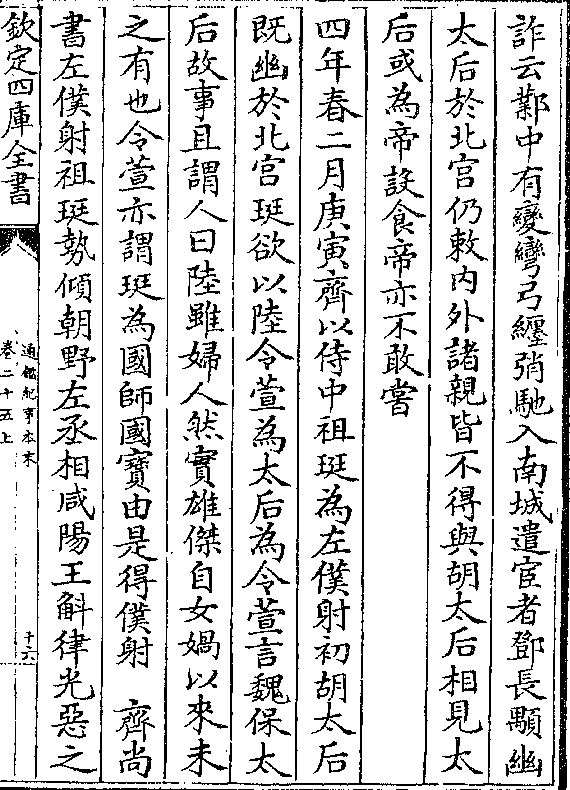 詐云鄴中有變彎弓纒弰馳入南城遣宦者鄧長顒幽
太后於北宮仍敕內外諸親皆不得與胡太后相見太
后或為帝設食帝亦不敢嘗
四年春二月庚寅齊以侍中祖珽為左僕射初胡太后
既幽於北宮珽欲以陸令萱為太后為令萱言魏保太
后故事且謂人曰陸雖婦人然實雄傑自女媧以來未
之有也令萱亦謂珽為國師國寶由是得僕射　齊尚
書左僕射祖珽勢傾朝野左丞相咸陽王斛律光惡之
欽定四庫全書
通鑑紀事本末
卷二十五上
十六